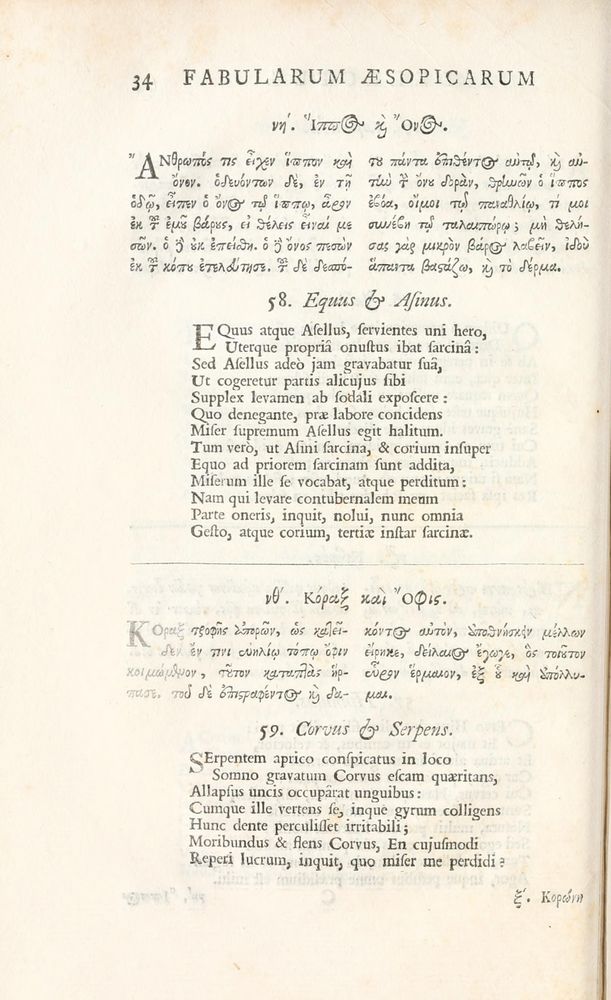 34 FABULARUM ÆSOPICARUM
νη΄. Ἵππος καὶ Ὄνος.
ἌΝθρωπός τις εἶχεν ἵππον καὶ
ὄνον. ὁδευόντων δὲ, ἐν τῇ
ὁδῷ, εἶπεν ὁ ὄνος τῷ ἵππῳ, ἆρον
ἐκ τοῦ ἐμοῦ βάρους, εἰ θέλεις εἶναί με
σῶν. ὁ δὲ οὐκ ἐπείσθη. ὁ δὲ ὄνος πεσὼν
ἐκ τοῦ κόπου ἐτελεύτησε. τοῦ δὲ δεσπό-
του πάντα ἐπιθέντος αὐτῷ, καὶ αὐ-
τὴν τοῦ ὄνου δορὰν, θρηνῶν ὁ ἵππος
ἐβόα, οἴμοι τῷ παναθλίῳ, τί μοι
συνέβη τῷ ταλαιπώρῳ; μὴ θελή-
σας γὰρ μικρὸν βάρος λαβεῖν, ἰδοὺ
ἅπαντα βαστάζω, καὶ τὸ δέρμα.
58. Equus & Asinus.
EQuus atque Asellus, servientes uni hero,
Uterque propriâ onustus ibat sarcinâ:
Sed Asellus adeò jam gravabatur suâ,
Ut cogeretur partis alicujus sibi
Supplex levamen ab sodali exposcere:
Quo denegante, præ labore concidens
Miser supremum Asellus egit halitum.
Tum verò, ut Asini sarcina, & corium insuper
Equo ad priorem sarcinam sunt addita,
Miserum ille se vocabat, atque perditum:
Nam qui levare contubernalem meum
Parte oneris, inquit, nolui, nunc omnia
Gesto, atque corium, tertiæ instar sarcinæ.
νθ΄. Κόραξ καὶ Ὄφις.
ΚΟραξ τροφῆς ἀπορῶν, ὡς κατεῖ-
δεν ἔν τινι εὐηλίῳ τόπῳ ὄφιν
κοιμώμενον, τοῦτον καταπτὰς ἥρ-
πασε. τοῦ δὲ ἐπιστραφέντος καὶ δα-
κόντος αὐτὸν, ἀποθνήσκειν μέλλων
εἴρηκε, δείλαιος ἔγωγε, ὃς τοιοῦτον
εὗρον ἕρμαιον, ἐξ οὗ καὶ ἀπόλλυ-
μαι.
59. Corvus & Serpens.
SErpentem aprico conspicatus in loco
Somno gravatum Corvus escam quæritans,
Allapsus uncis occupârat unguibus:
Cumque ille vertens se, inque gyrum colligens
Hunc dente perculisset irritabili;
Moribundus & flens Corvus, En cujusmodi
Reperi lucrum, inquit, quo miser me perdidi?
ξ΄. Κορώνη